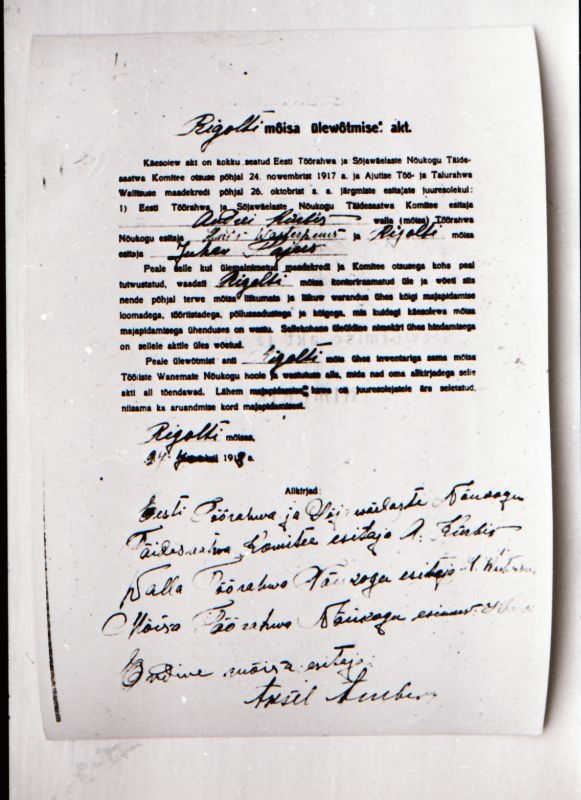 Rigolti mõisa ülewõtmise akt.
Käesolew akt on kokku seatud Eesti Töörahwa ja Sõjawäelaste Nõukogu Täide-
saatwa Komitee otsuse põhjal 24. novembrist 1917 a. ja Ajutise Töö- ja Talurahwa
Walitsuse maadekredi põhjal 26. oktobrist s. a. järgmiste esitajate juuresolekul:
1) Eesti Töörahwa ja Sõjawäelaste Nõukogu Täidesaatwa Komitee esitaja
Andrei Kürbis walla (mõisa) Töörahwa
Nõukogu esitaja ja Rigolti mõisa
esitaja Juhan
Peale selle kui ülemalnimetud maadekredi ja Komitee otsusega koha peal
tutwustatud, waadati Rigolti mõisa kontoriraamatud üle ja wõeti siis
nende põhjal terwe mõisa liikumata ja liikuw warandus ühes kõigi majapidamise
loomadega, tööriistadega, põllusaadustega ja kõigega, mis kuidagi käesolewa mõisa
majapidamisega ühenduses on wastu. Sellekohane üksikline nimekiri ühes hindamisega
on sellele aktile üles wõetud.
Peale ülewõtmist anti Rigolti mõis ühes inwentariga sama mõisa
Tööliste Wanemate Nõukogu hoole ja wastutuse alla, mida nad oma allkirjadega selle
akti all tõendawad. Lähem majapidamise kord on juuresolejatele ära seletatud,
niisama ka aruandmise kord majapidamisest.
Rigolti mõisas,
24. 1918 a.
Allkirjad:
Eesti Töörahwa ja Sõjawäelaste Nõukogu
Täidesaatwa Komitee esitaja A. Kürbis
Walla Töörahwa Nõukogu esitaja
Mõisa Töörahwa Nõukogu esimees
Endine mõisa esitaja:
Aksel